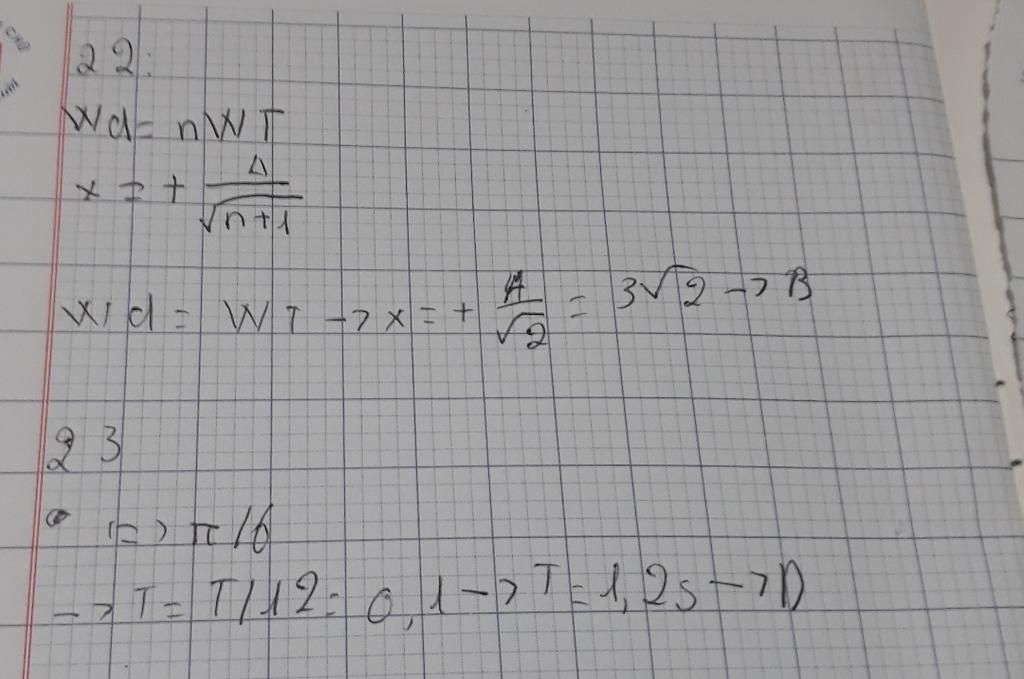 22:
Wd = nWT
x = + A/√(n+1)
Wd = WT -> x = + A/√2 = 3√2 -> B
23
=> π/6
-> T = T/12 = 0,1 -> T = 1,2s -> D